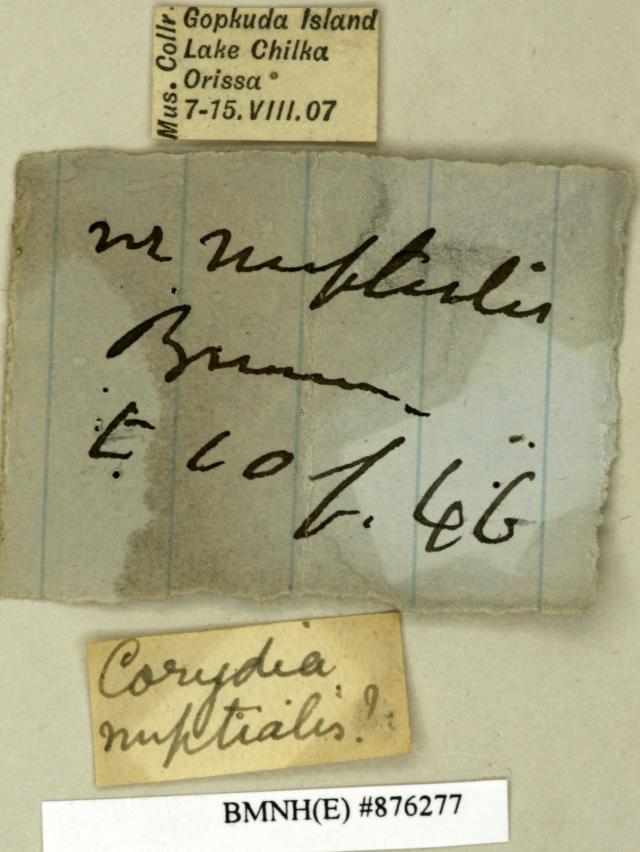 Mus. Collr.
Gopkuda Island
Lake Chilka
Orissa
7-15.VIII.07
nr nuptialis
Corydia
nuptialis?
BMNH(E) #876277